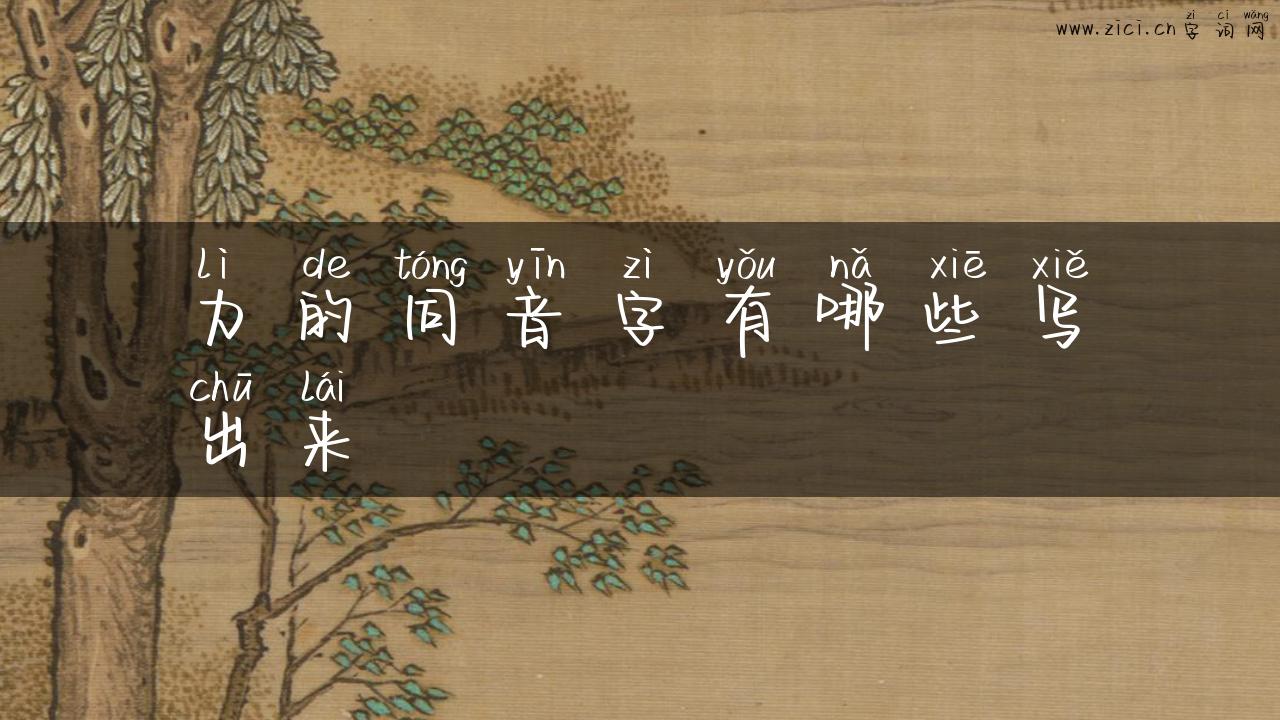 zì cí wǎng
www.zici.cn 字词网
lì de tóng yīn zì yǒu nǎ xiē xiě
力的同音字有哪些写
chū lái
出来